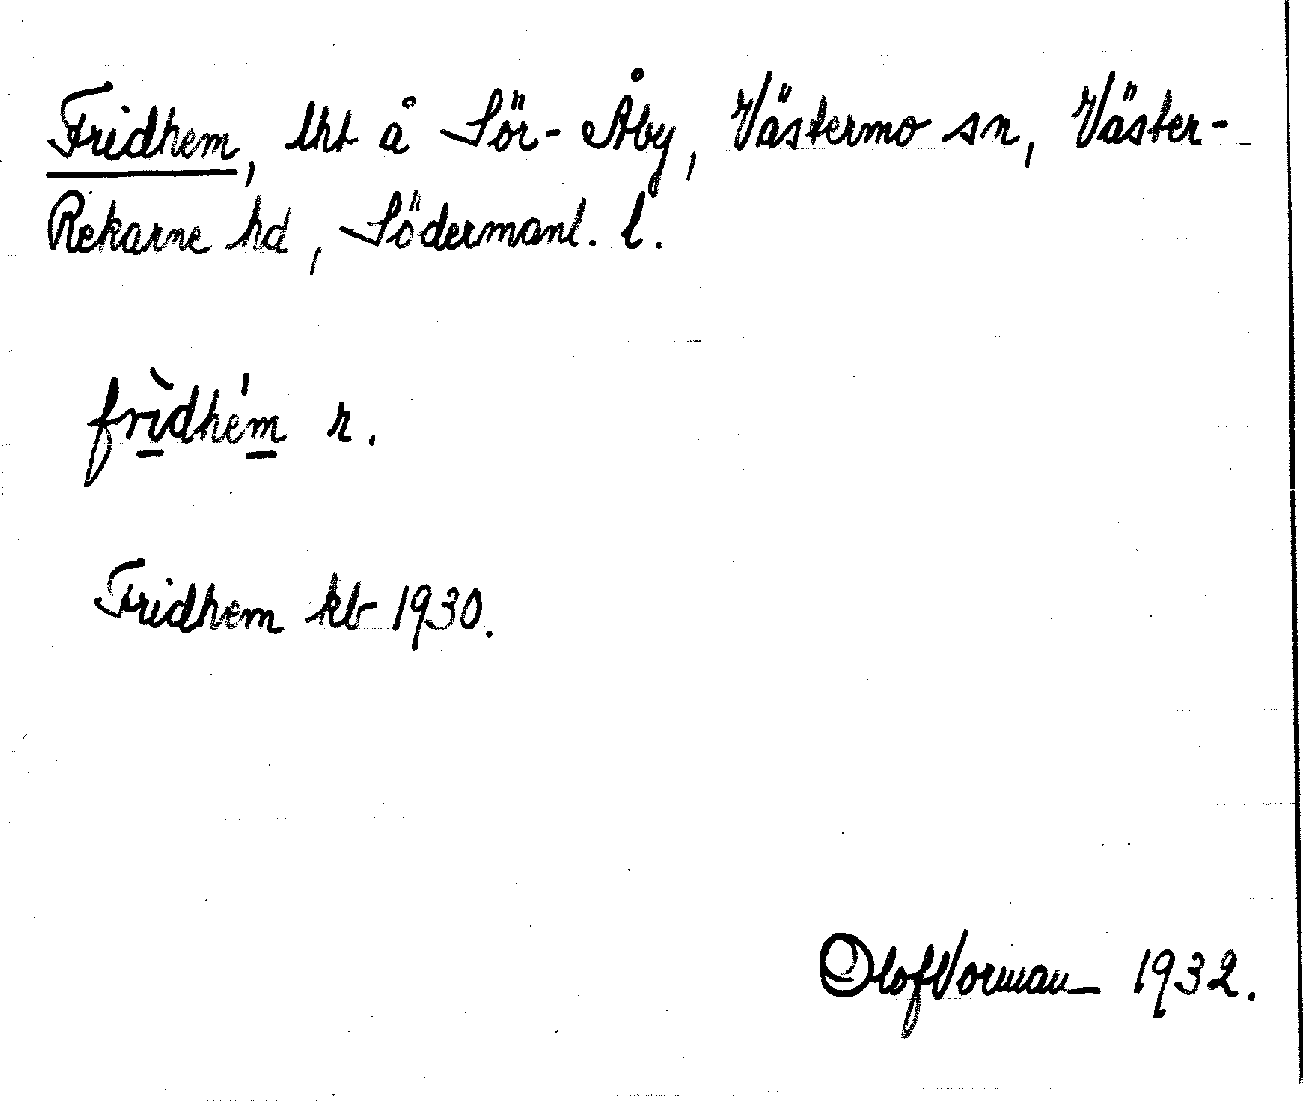 Fridhem, lht å Sör-Åby, Västermo sn, Väster-
Rekarne hd, Södermanl. l.
frìdhém n.
Fridhem kb 1930.
Olof Norman 1932.